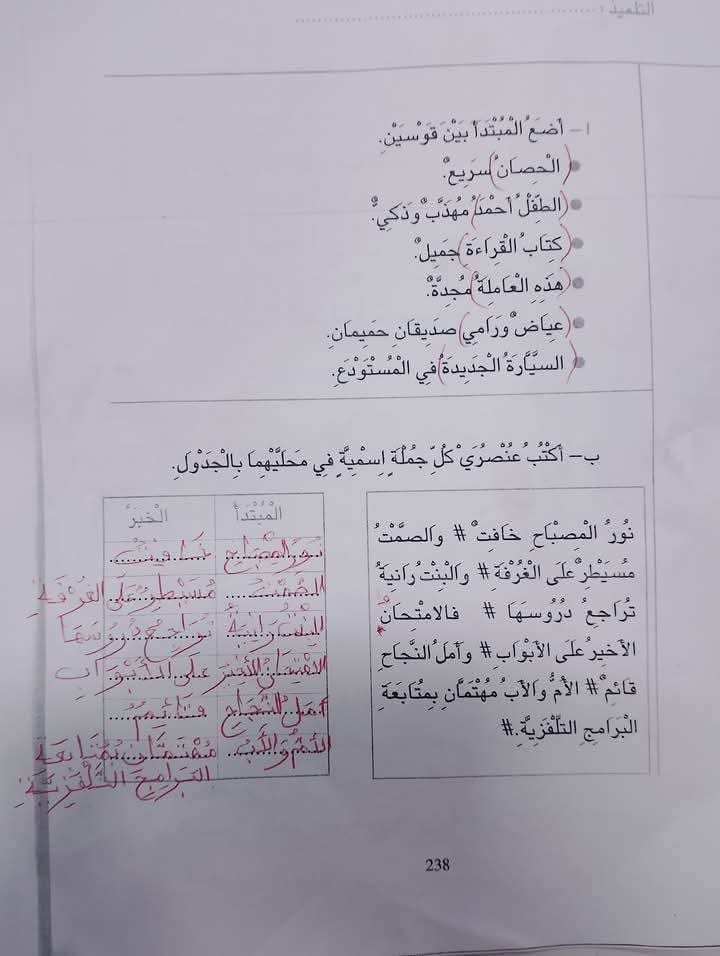 التلميذ : ........................................
١ – أَضَعُ الْمُبْتَدَأَ بَيْنَ قَوْسَيْنِ.
(الْحِصَانُ) سَرِيعٌ.
(الطِّفْلُ أَحْمَدُ) مُهَذَّبٌ وَذَكِيٌّ.
(كِتَابُ الْقِرَاءَةِ) جَمِيلٌ.
(هَذِهِ الْعَامِلَةُ) مُجِدَّةٌ.
(عِيَاضٌ وَرَامِي) صَدِيقَانِ حَمِيمَانِ.
(السَّيَّارَةُ الْجَدِيدَةُ) فِي الْمُسْتَوْدَعِ.
ب – أَكْتُبُ عُنْصُرَيْ كُلِّ جُمْلَةٍ اِسْمِيَّةٍ فِي مَحَلَّيْهِمَا بِالْجَدْوَلِ.
نُورُ الْمِصْبَاحِ خَافِتٌ # وَالصَّمْتُ
مُسَيْطِرٌ عَلَى الْغُرْفَةِ # وَالْبِنْتُ رَانِيَةُ
تُرَاجِعُ دُرُوسَهَا # فَالامْتِحَانُ
الأَخِيرُ عَلَى الأَبْوَابِ # وَأَمَلُ النَّجَاحِ
قَائِمٌ # الأُمُّ وَالأَبُ مُهْتَمَّانِ بِمُتَابَعَةِ
الْبَرَامِجِ التَّلْفَزِيَّةِ.#
الْمُبْتَدَأُ الْخَبَرُ
نُورُ الْمِصْبَاحِ خَافِتٌ
الصَّمْتُ مُسَيْطِرٌ عَلَى الْغُرْفَةِ
الْبِنْتُ رَانِيَةُ تُرَاجِعُ دُرُوسَهَا
الامْتِحَانُ الأَخِيرُ عَلَى الأَبْوَابِ
أَمَلُ النَّجَاحِ قَائِمٌ
الأُمُّ وَالأَبُ مُهْتَمَّانِ بِمُتَابَعَةِ
الْبَرَامِجِ التَّلْفَزِيَّةِ
238